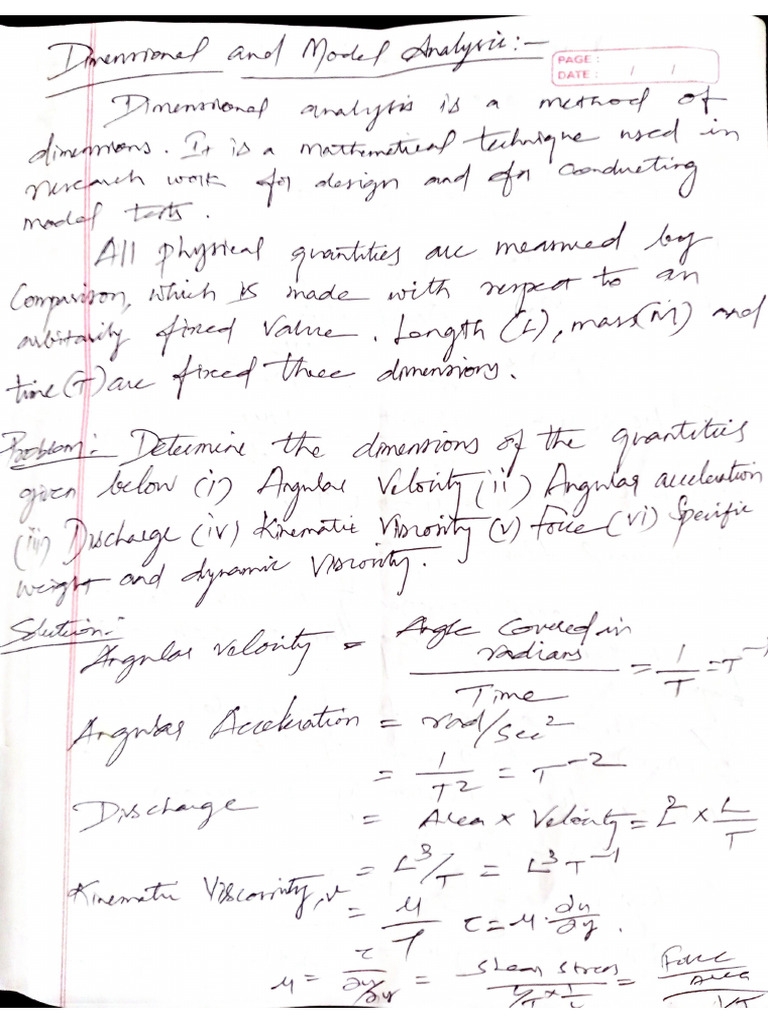 Dimensional and Model Analysis:-
PAGE :
DATE : / /
Dimensional analysis is a method of
dimensions. It is a mathematical technique used in
research work for design and for conducting
model tests.
All physical quantities are measured by
Comparison, which is made with respect to an
arbitarily fixed value. Length (L), mass(M) and
time(T) are fixed three dimensions.
Problem: Determine the dimensions of the quantities
given below (i) Angular Velocity (ii) Angular acceleration
(iii) Discharge (iv) Kinematic Viscosity (v) Force (vi) Specific
weight and dynamic viscosity.
Solution:-
Angular velocity = Angle Covered in radians / Time = 1/T = T⁻¹
Angular Acceleration = rad/Sec²
= 1/T² = T⁻²
Discharge = Area × Velocity = L² × L/T
= L³/T = L³T⁻¹
Kinematic Viscosity, ν = μ/ρ τ = μ·∂u/∂y.
μ = τ / ∂u/∂y = Shear Stress / L/T × 1/L = Force/Area / 1/T